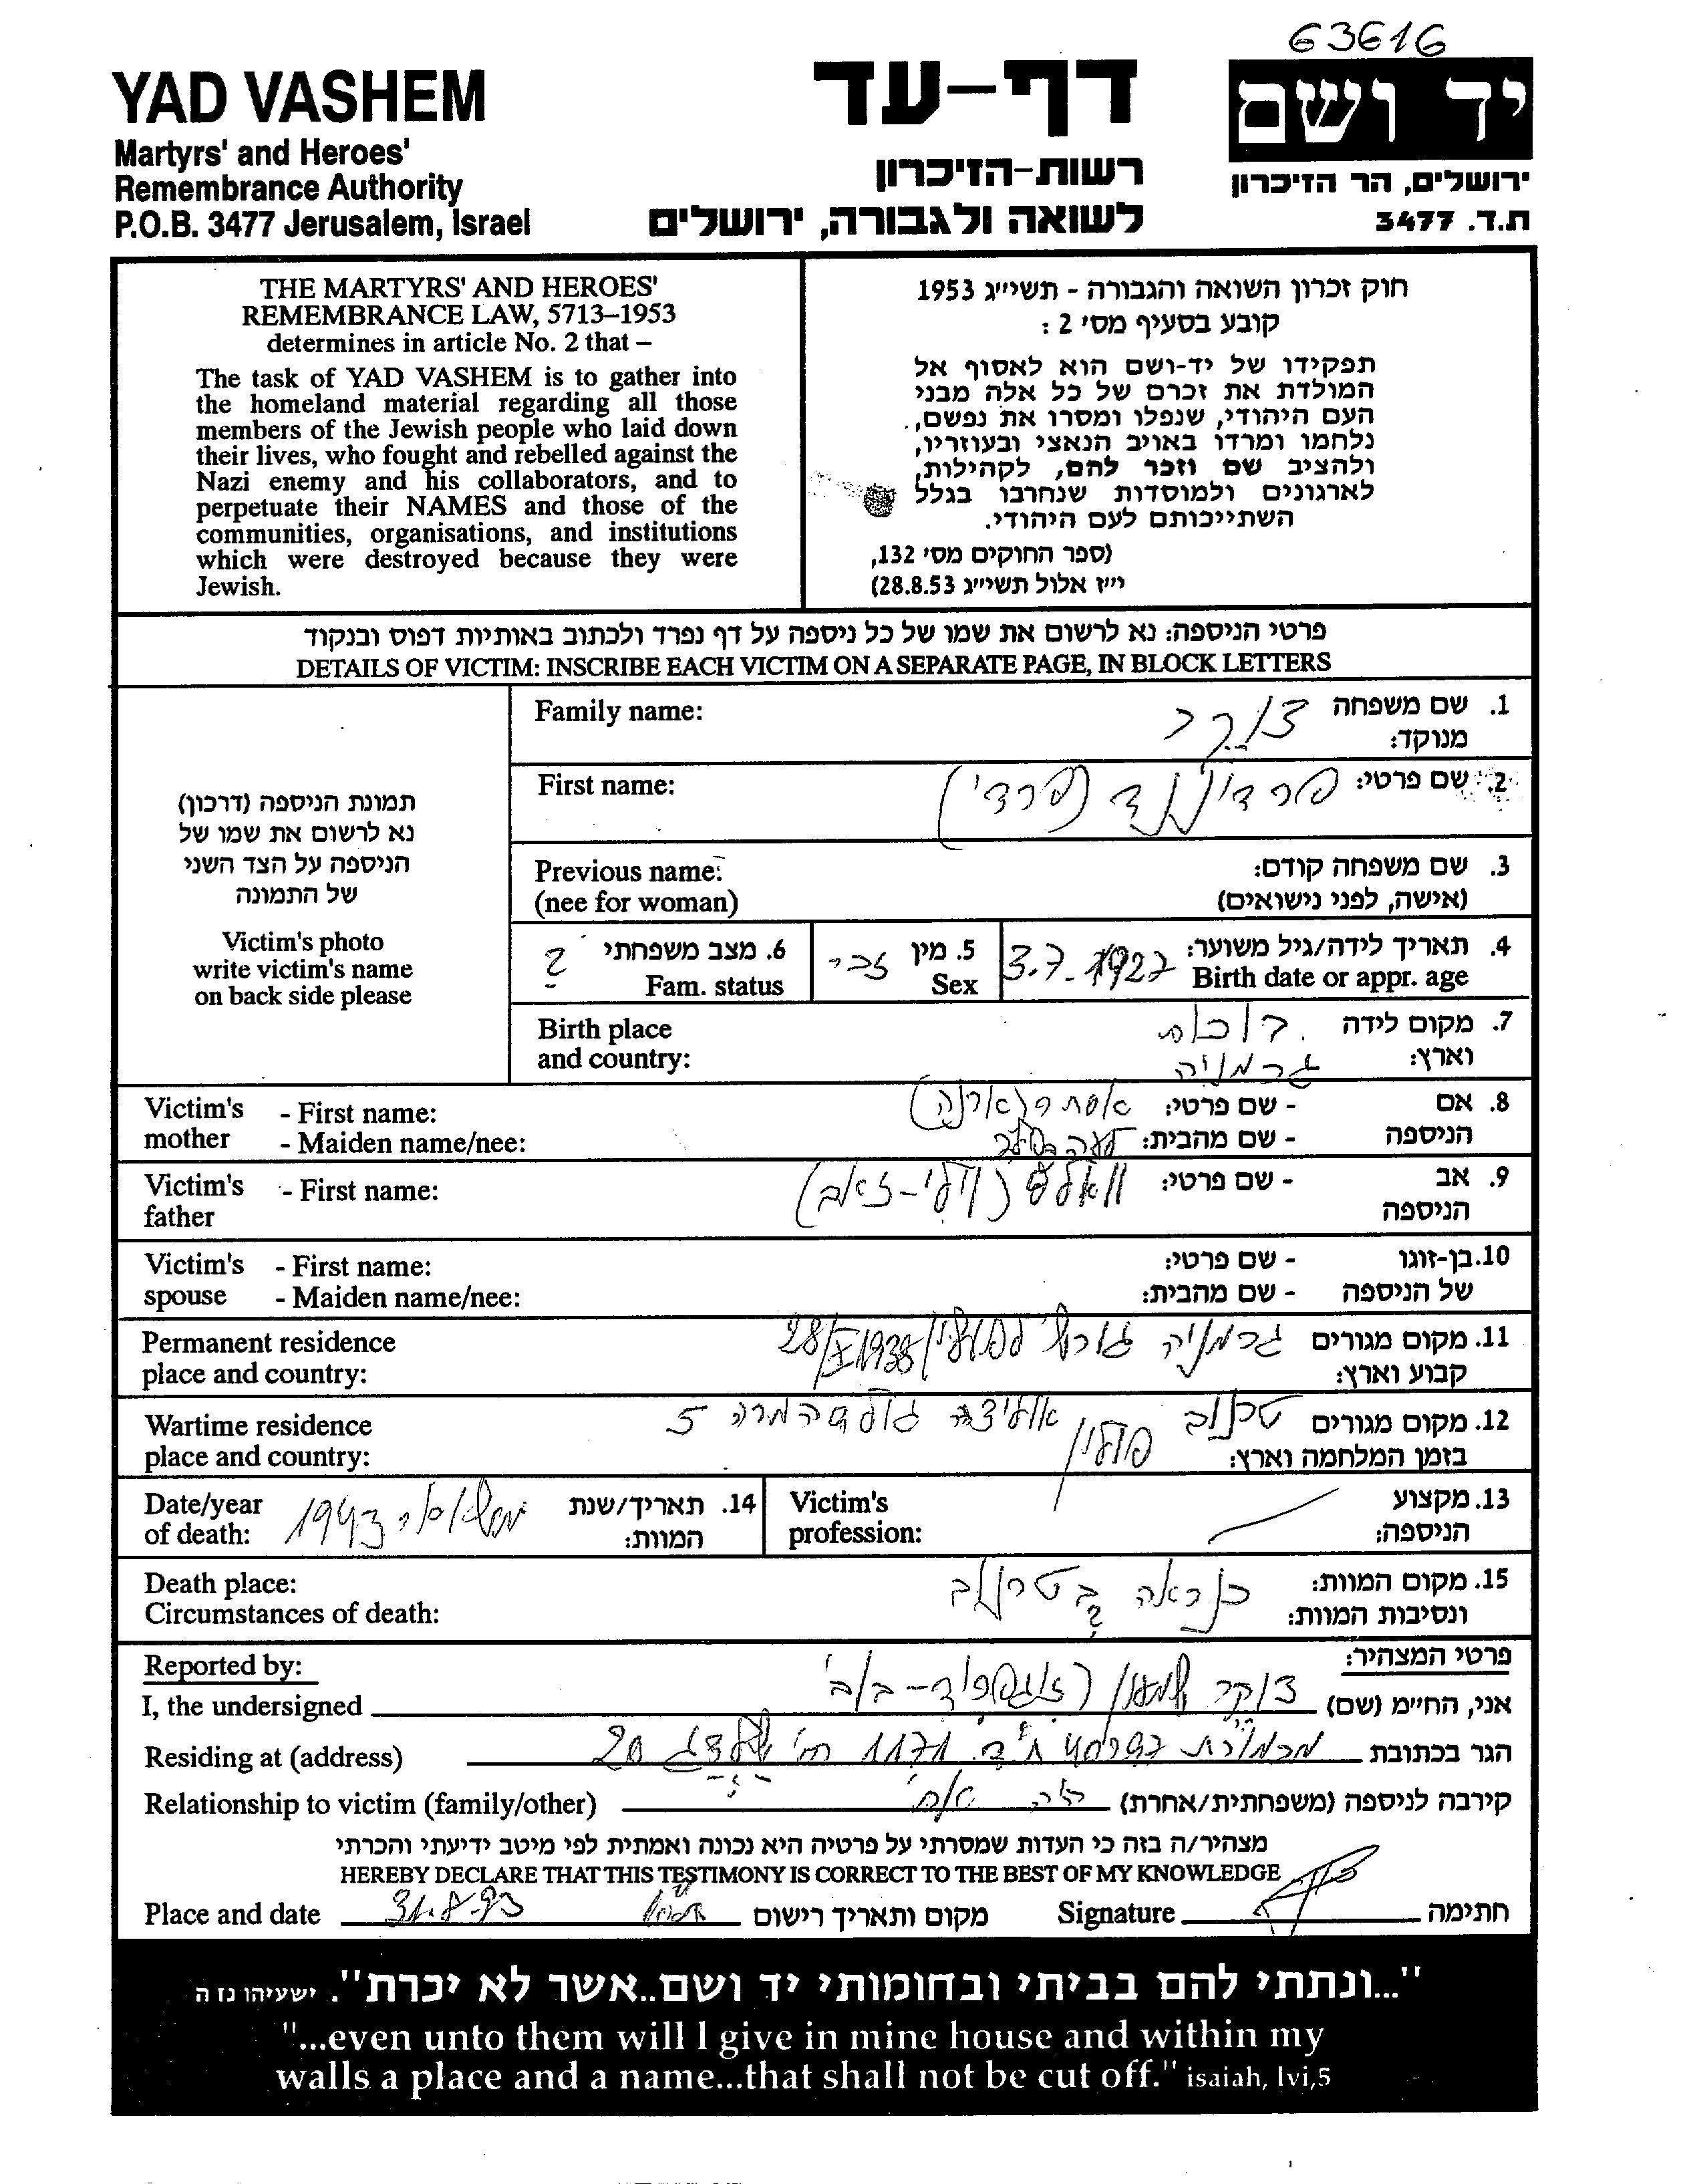 63616
YAD VASHEM
Martyrs' and Heroes'
Remembrance Authority
P.O.B. 3477 Jerusalem, Israel
דף-עד
רשות-הזיכרון
לשואה ולגבורה, ירושלים
יד ושם
ירושלים, הר הזיכרון
ת.ד. 3477
THE MARTYRS' AND HEROES'
REMEMBRANCE LAW, 5713–1953
determines in article No. 2 that –
The task of YAD VASHEM is to gather into
the homeland material regarding all those
members of the Jewish people who laid down
their lives, who fought and rebelled against the
Nazi enemy and his collaborators, and to
perpetuate their NAMES and those of the
communities, organisations, and institutions
which were destroyed because they were
Jewish.
חוק זכרון השואה והגבורה - תשי״ג 1953
קובע בסעיף מס׳ 2 :
תפקידו של יד-ושם הוא לאסוף אל
המולדת את זכרם של כל אלה מבני
העם היהודי, שנפלו ומסרו את נפשם,
נלחמו ומרדו באויב הנאצי ובעוזריו,
ולהציב שם וזכר להם, לקהילות,
לארגונים ולמוסדות שנחרבו בגלל
השתייכותם לעם היהודי.
(ספר החוקים מס׳ 132,
י״ז אלול תשי״ג 28.8.53)
פרטי הניספה: נא לרשום את שמו של כל ניספה על דף נפרד ולכתוב באותיות דפוס ובנקוד
DETAILS OF VICTIM: INSCRIBE EACH VICTIM ON A SEPARATE PAGE, IN BLOCK LETTERS
תמונת הניספה (דרכון)
נא לרשום את שמו של
הניספה על הצד השני
של התמונה
Victim's photo
write victim's name
on back side please
Family name: צוקר 1. שם משפחה
מנוקד:
First name: פרדיננד (פרדי) 2. שם פרטי:
Previous name: 3. שם משפחה קודם:
(nee for woman) (אישה, לפני נישואים)
4. תאריך לידה/גיל משוער: 3.7.1927
Birth date or appr. age
5. מין זכר
Sex
6. מצב משפחתי ?
Fam. status
Birth place 7. מקום לידה
and country: וארץ: גרמניה
Victim's - First name: - שם פרטי: 8. אם
mother - Maiden name/nee: - שם מהבית: הניספה
Victim's - First name: - שם פרטי: 9. אב
father הניספה
Victim's - First name: - שם פרטי: 10. בן-זוגו
spouse - Maiden name/nee: - שם מהבית: של הניספה
Permanent residence 11. מקום מגורים גרמניה 28/X 1938
place and country: קבוע וארץ:
Wartime residence 12. מקום מגורים טרנוב פולין 5
place and country: בזמן המלחמה וארץ:
Date/year 14. תאריך/שנת 1943
of death: המוות:
Victim's 13. מקצוע
profession: הניספה:
Death place: 15. מקום המוות: כנראה בטרנוב
Circumstances of death: ונסיבות המוות: ?
Reported by: פרטי המצהיר:
I, the undersigned אני, החי״מ (שם) צוקר שמעון
Residing at (address) הגר בכתובת 1171 20
Relationship to victim (family/other) קירבה לניספה (משפחתית/אחרת)
מצהיר/ה בזה כי העדות שמסרתי על פרטיה היא נכונה ואמתית לפי מיטב ידיעתי והכרתי
HEREBY DECLARE THAT THIS TESTIMONY IS CORRECT TO THE BEST OF MY KNOWLEDGE
Place and date 31.8.93 מקום ותאריך רישום Signature חתימה
"...ונתתי להם בביתי ובחומותי יד ושם..אשר לא יכרת". ישעיהו נז ה
"...even unto them will I give in mine house and within my
walls a place and a name...that shall not be cut off." isaiah, lvi,5